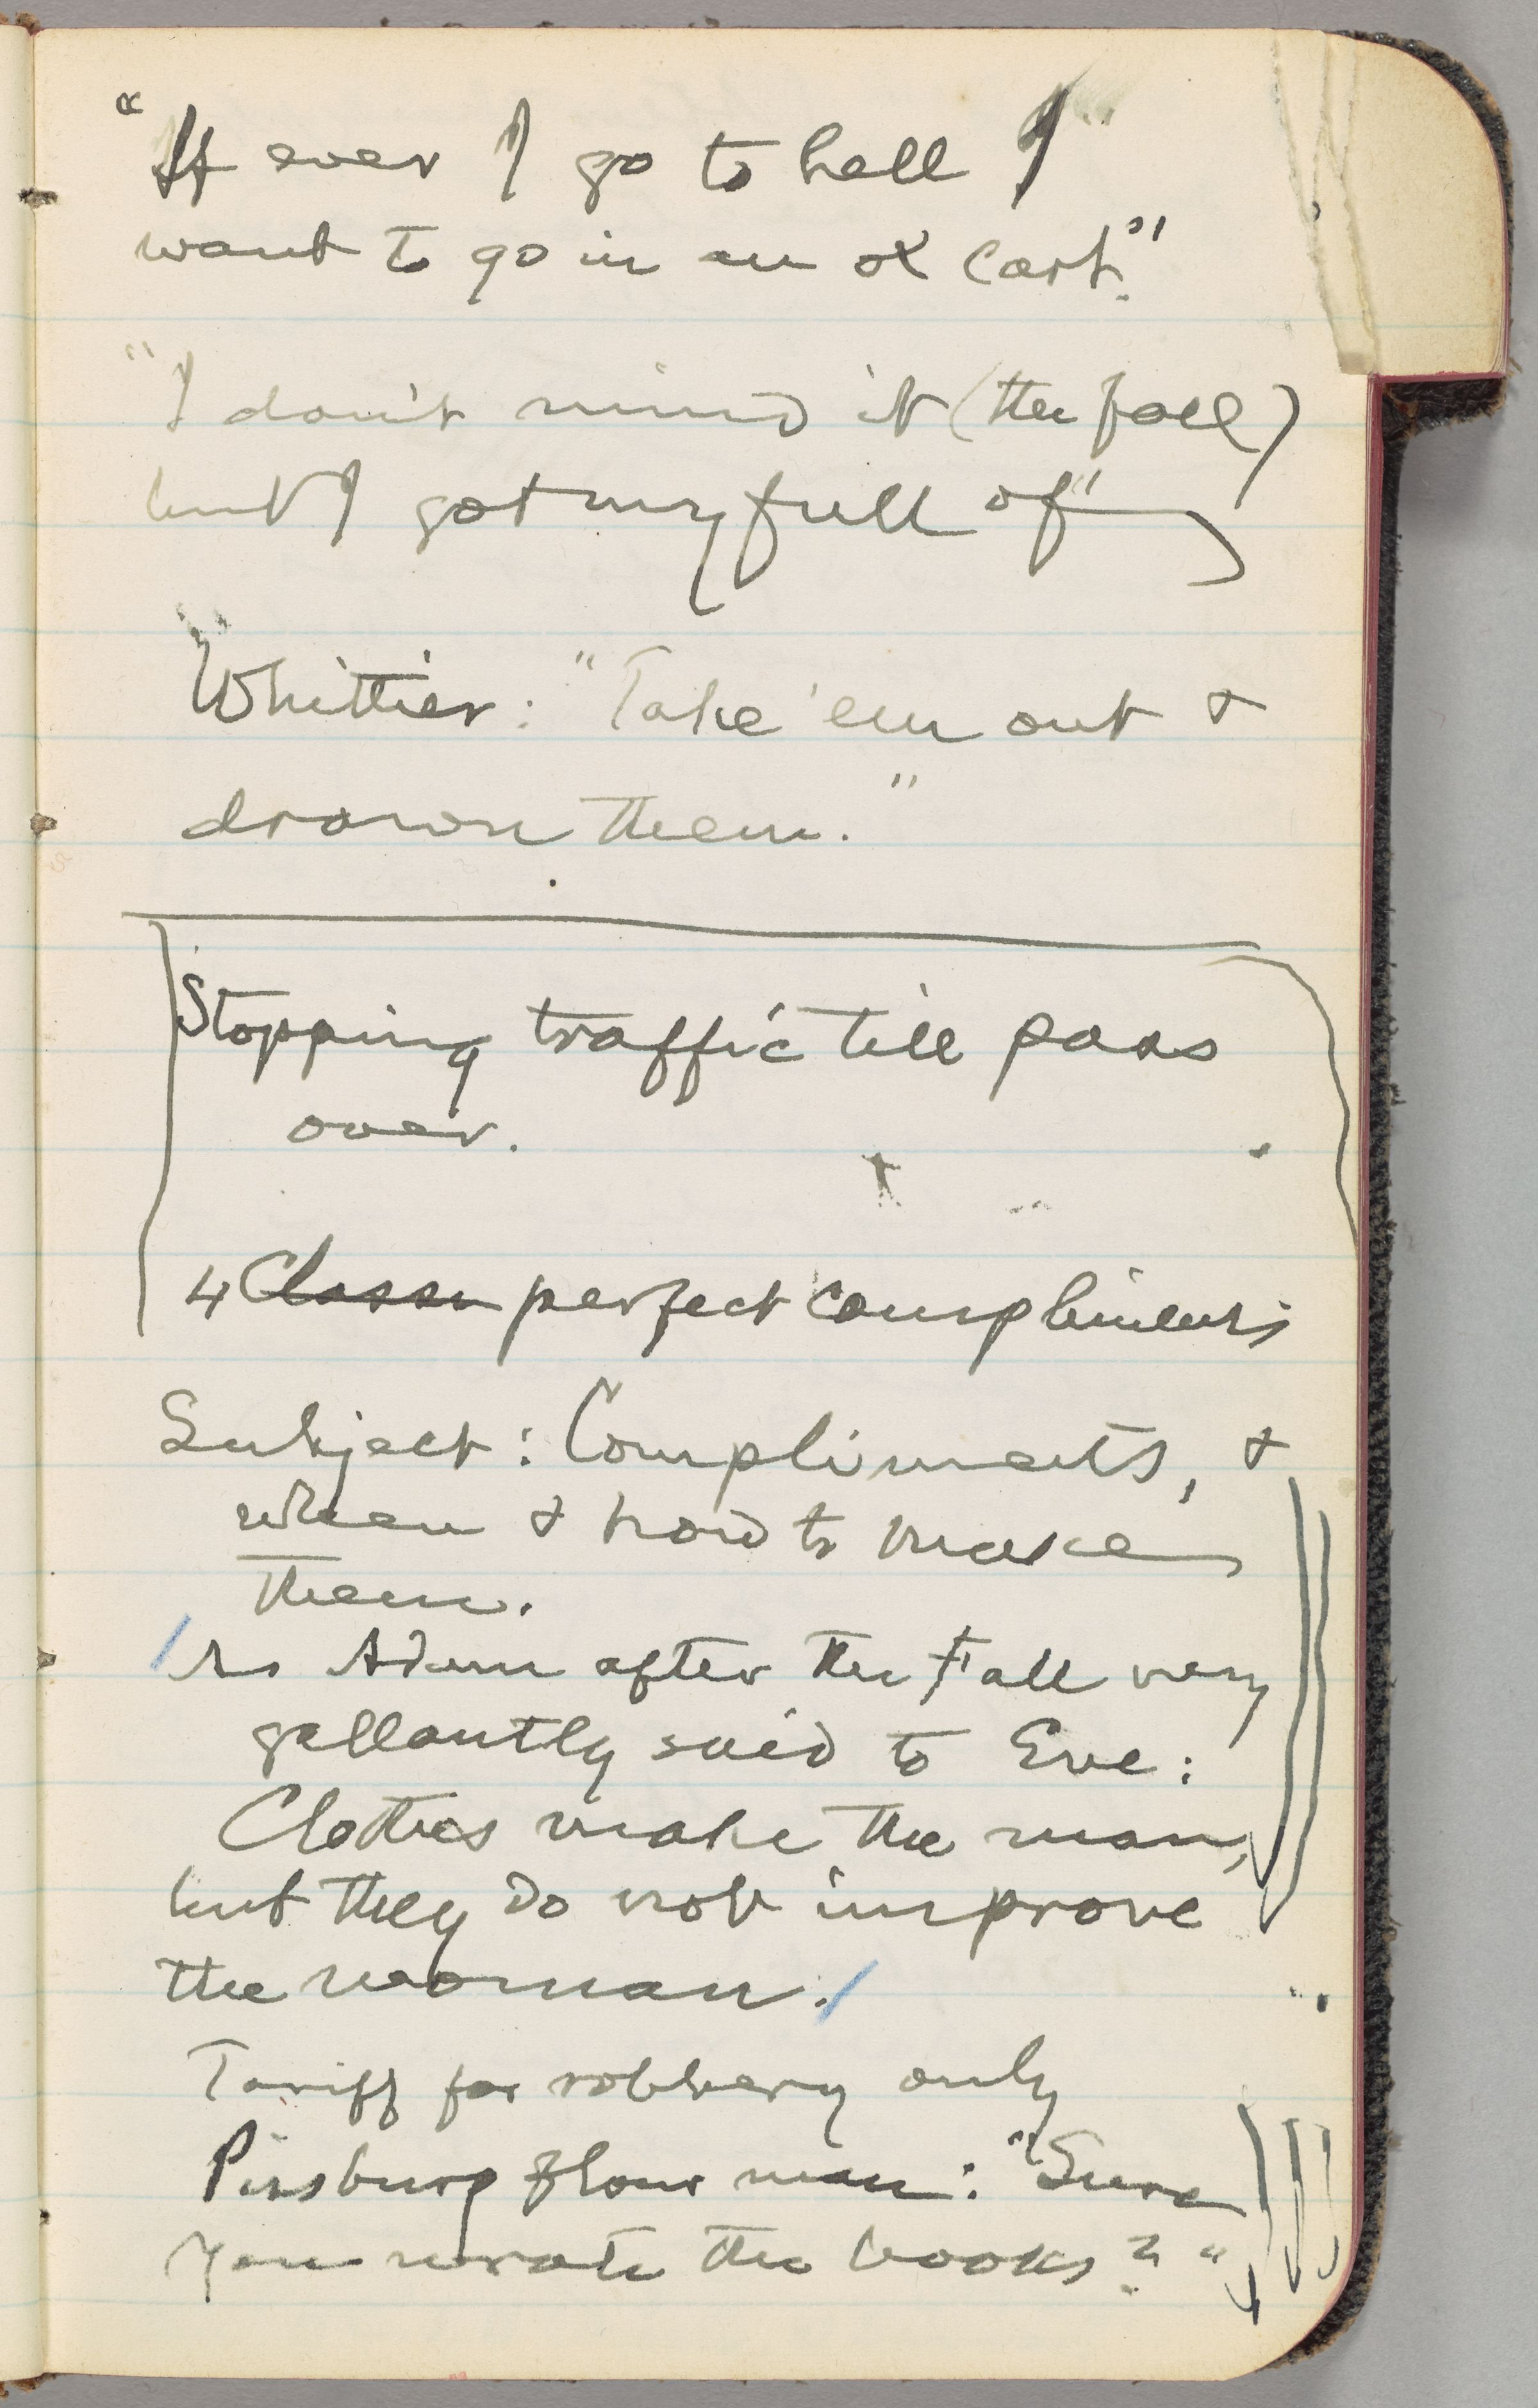 "If ever I go to hell I
want to go in an ox cart."
"I don't mind it (the fall)
but I got my full of"
Whittier: "Take 'em out &
drown them."
Stopping traffic till pass
over.
4 Classn perfect compliments
Subject: Compliments, &
when & how to make
them.
As Adam after the Fall very
gallantly said to Eve:
Clothes make the man,
but they do not improve
the woman.
Tariff for robbery only
Pissburg flour man: "Sure
you wrote the books?"